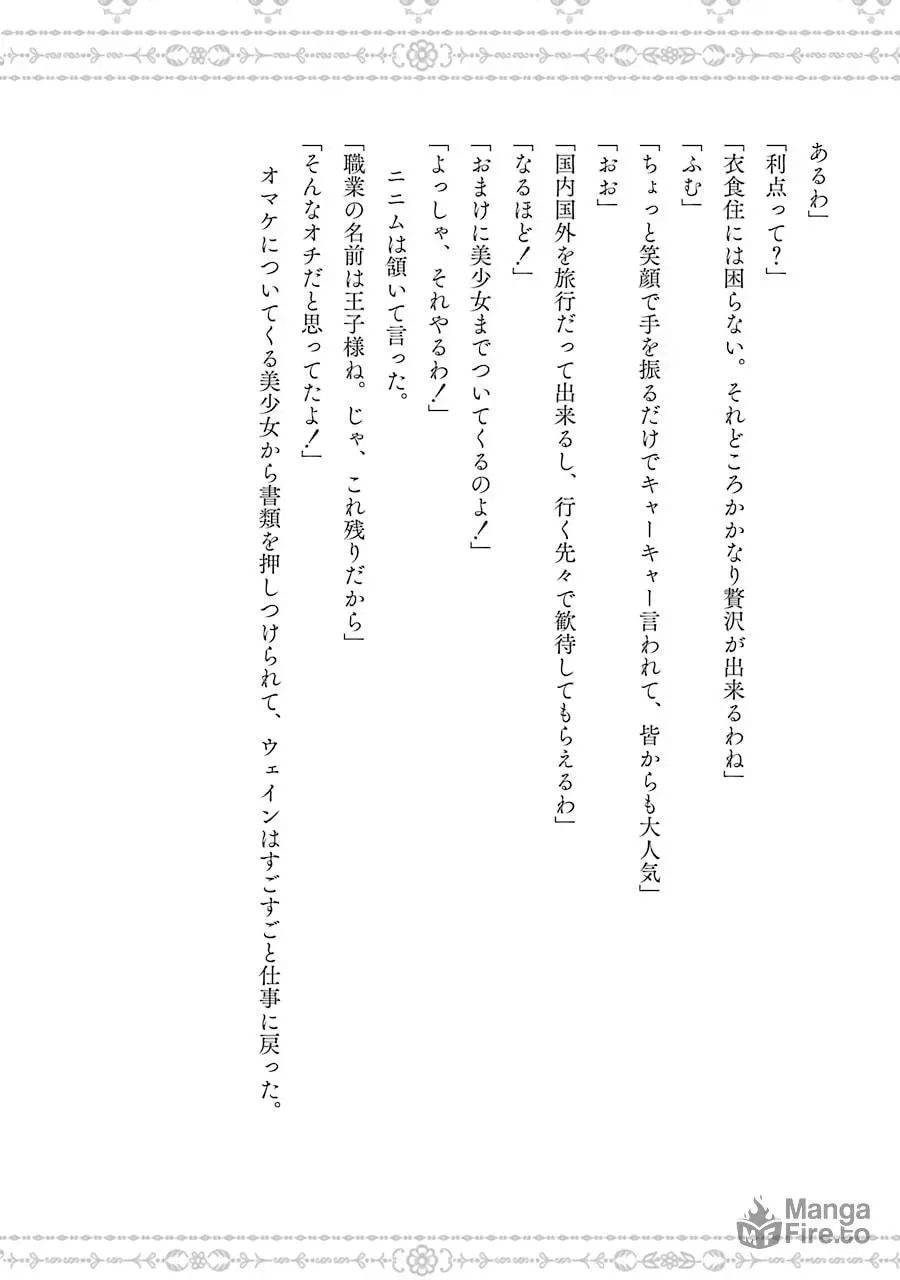 あるわ」
「利点って？」
「衣食住には困らない。それどころかかなり贅沢が出来るわね」
「ふむ」
「ちょっと笑顔で手を振るだけでキャーキャー言われて、皆からも大人気」
「おお」
「国内国外を旅行だって出来るし、行く先々で歓待してもらえるわ」
「なるほど！」
「おまけに美少女までついてくるのよ！」
「よっしゃ、それやるわ！」
ニニムは頷いて言った。
「職業の名前は王子様ね。じゃ、これ残りだから」
「そんなオチだと思ってたよ！」
オマケについてくる美少女から書類を押しつけられて、ウェインはすごすごと仕事に戻った。
Manga
Fire.to